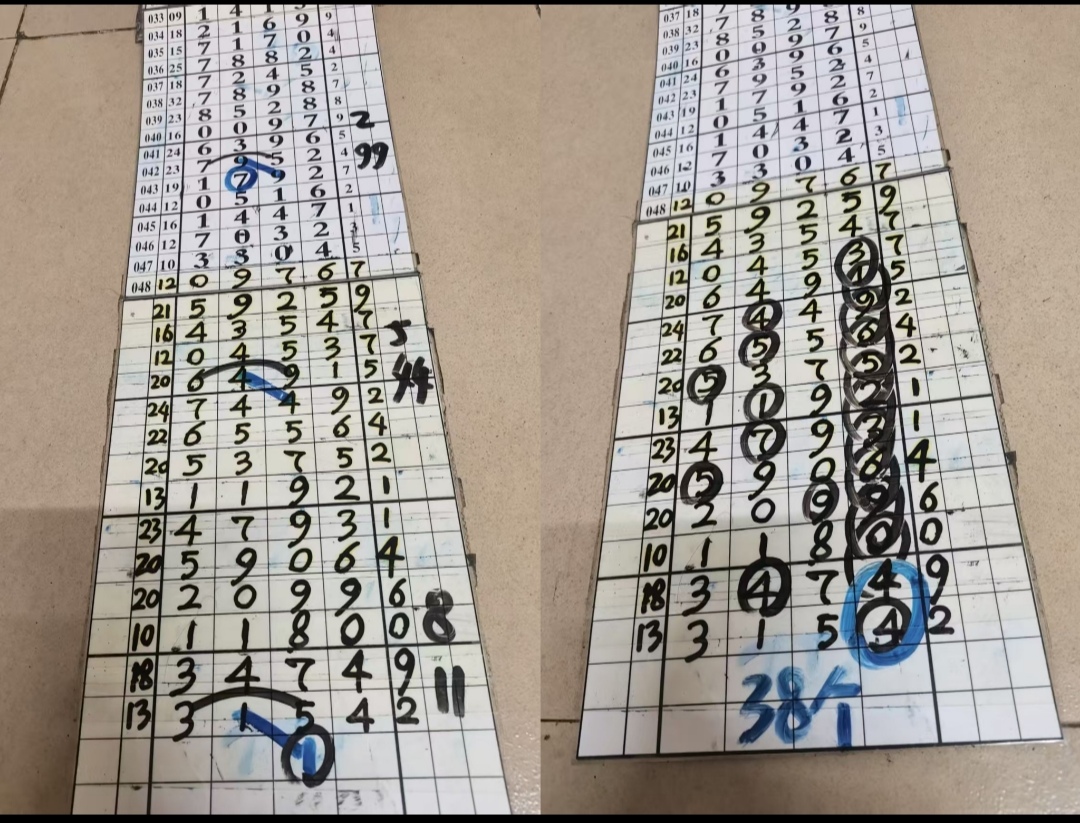 033 09 1 4 1 3
034 18 2 1 6 9 9
035 15 7 1 7 0 4
036 25 7 8 8 2 4
037 18 7 2 4 5 2
038 32 7 8 9 8 7
039 23 8 5 2 8 8
040 16 0 0 9 7 9 2
041 24 6 3 9 6 5
042 23 7 9 5 2 4 99
043 19 1 7 9 2 7
044 12 0 5 1 6 2
045 16 1 4 4 7 1
046 12 7 0 3 2 3
047 10 3 3 0 4 5
048 12 0 9 7 6 7
21 5 9 2 5 9
16 4 3 5 4 7 5
12 0 4 5 3 7
20 6 4 9 1 5 44
24 7 4 4 9 2
22 6 5 5 6 4
20 5 3 7 5 2
13 1 1 9 2 1
23 4 7 9 3 1
20 5 9 0 6 4
20 2 0 9 9 6 8
10 1 1 8 0 0
18 3 4 7 4 9 11
13 3 1 5 4 2
1
037 18
038 32 7 8 9 8
039 23 8 5 2 8 8
040 16 0 0 9 7 9
041 24 6 3 9 6 5
042 23 7 9 5 2 4
043 19 1 7 9 2 7
044 12 0 5 1 6 2
045 16 1 4 4 7 1
046 12 7 0 3 2 3
047 10 3 3 0 4 5
048 12 0 9 7 6 7
21 5 9 2 5 9
16 4 3 5 4 7
12 0 4 5 3 7
20 6 4 9 1 5
24 7 4 4 9 2
22 6 5 5 6 4
20 5 3 7 5 2
13 1 1 9 2 1
23 4 7 9 3 1
20 5 9 0 6 4
20 2 0 9 9 6
10 1 1 8 0 0
18 3 4 7 4 9
13 3 1 5 4 2
38
1